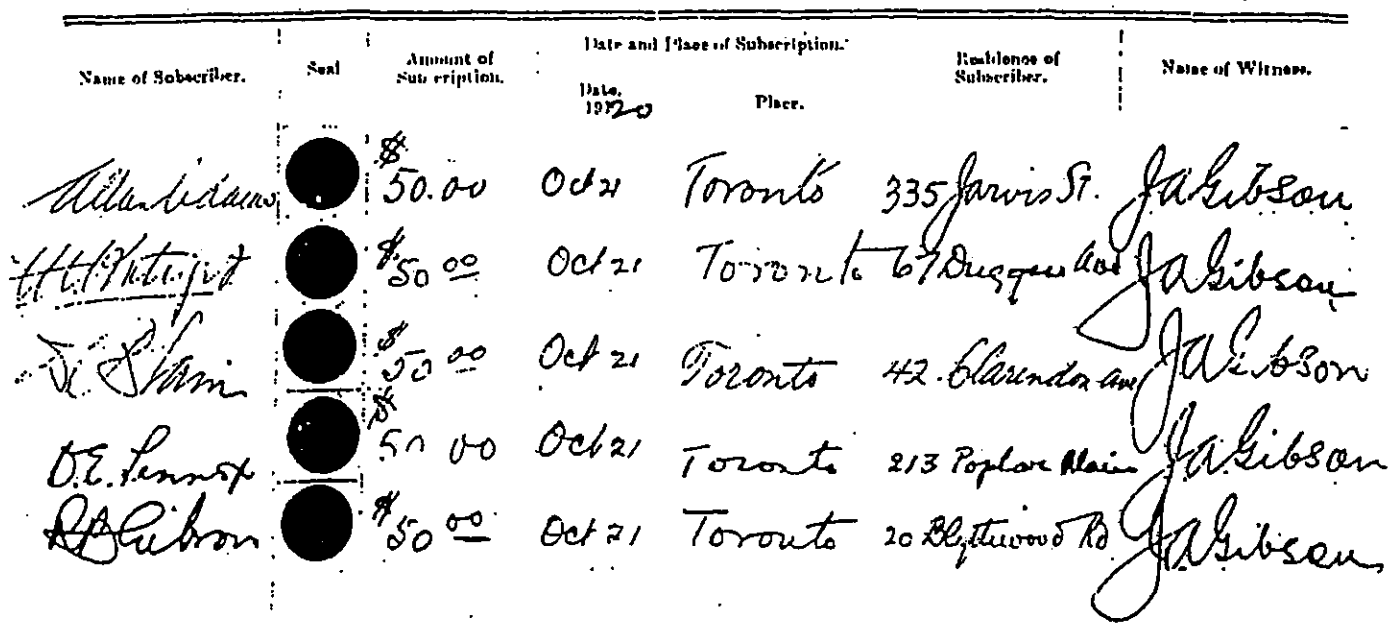 Name of Subscriber. Seal Amount of Subscription. Date and Place of Subscription. Residence of Subscriber. Name of Witness.
Date. 1920 Place.
$50.00 Oct 21 Toronto 335 Jarvis St. JA Gibson
$50 00 Oct 21 Toronto 67 Duggan Ave JA Gibson
$50 00 Oct 21 Toronto 42 Clarendon Ave JA Gibson
D.E. Lennox $50 00 Oct 21 Toronto 213 Poplar Plains JA Gibson
RB Gibson $50 00 Oct 21 Toronto 20 Blythwood Rd JA Gibson